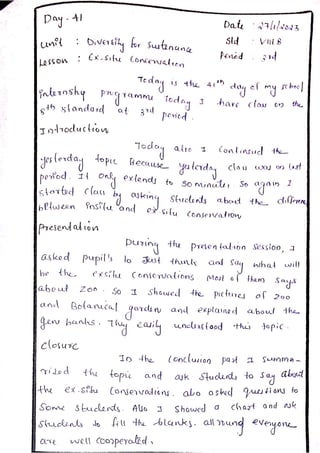 Day - 41
Date : 27/1/2023
Unit : Diversity for Sustenance Std : VIII B
Lesson : Ex-situ Conservation Period : 3rd
Today is the 41th day of my school
internship programme Today I have class on the
8th standard at 3rd period.
Introduction
Today also I Continued the
yesterday topic Because yesterday class was on last
period. It only extends to 30 minutes So again I
started Class by asking Students about the difference
between insitu and ex situ Conservation
Presentation
During the presentation Session, I
asked pupil's to Just think and say what will
be the exsitu Conservations most of them says
about Zoo. So I showed the pictures of zoo
and Botanical garden and explained about the
gene banks. They easily understood this topic.
Closure
In the Conclusion part I Summa-
rised the topic and ask Students to say about
the ex-situ Conservations. also asked questions to
Some students. Also I Showed a chart and ask
students to fill the blanks. all rung everyone
are well cooperated.